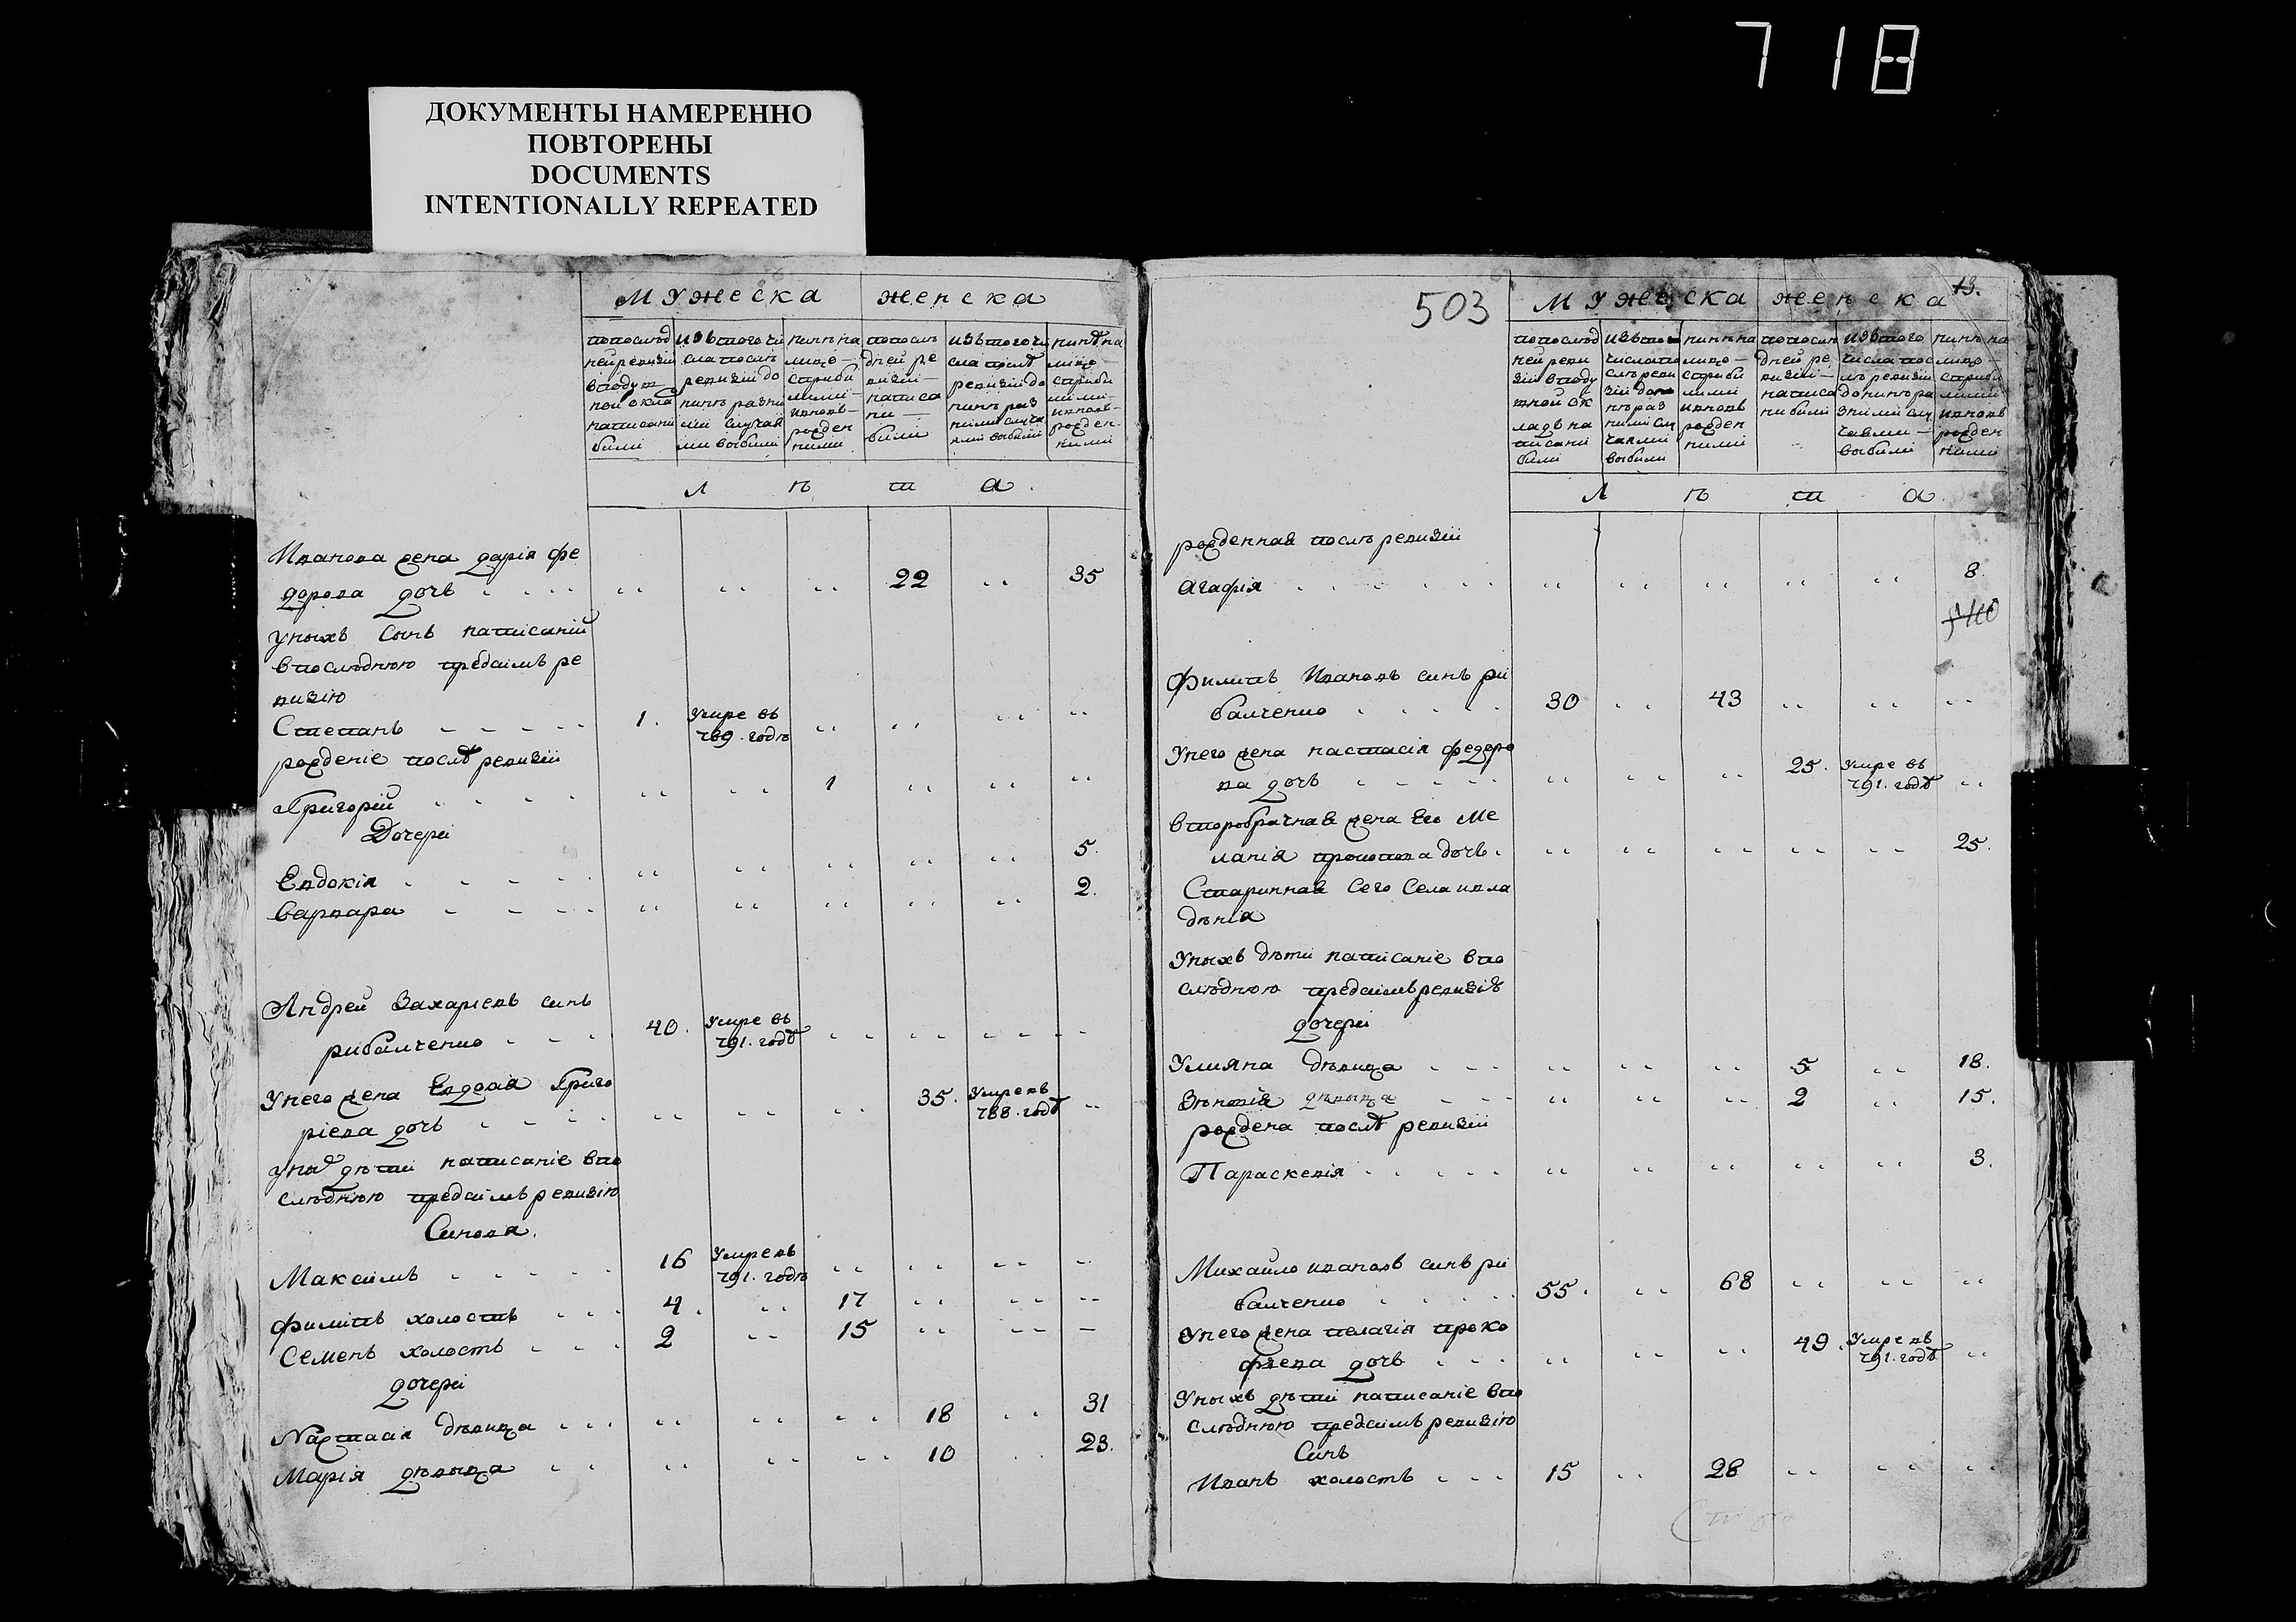 718
ДОКУМЕНТЫ НАМЕРЕННО
ПОВТОРЕНЫ
DOCUMENTS
INTENTIONALLY REPEATED
Мужеска женска
попослѣд
ней ревизіи
вподуш
ной окла
написани
били
изътого чи
сла послѣ
ревизіи до
нинѣ разни
ми случая
ми выбили
нинѣ на
лицо
сприби
лими
ивновь
рожден
ними
попослѣ
дней ре
визіи
написа
ни
били
изътого чи
сла послѣ
ревизіи до
нинѣ раз
ними случа
ями выбили
нинѣ на
лицо
сприби
лими
ивновь
рожден
ними
лѣта
Иванова жена дарія фе
дорова дочь 22 35
унихъ синъ написаній
впослѣднюю предсимъ ре
визію
Степанъ 1. Умре въ 789. годѣ
рожденіе послѣ ревизіи
Григорій 1
Дочери
Евдокія 5.
Варвара 2.
Андрей Захаріевъ синъ
рибалченко 40. Умре въ 791. годѣ
Унего жена Евдокія Григо
ріева дочь 35. Умре въ 788. годѣ
унихъ дѣти написаніе впо
слѣднюю предсимъ ревизію
Синовя.
Максимъ 16 Умре въ 791. годѣ
филипъ холостъ 4. 17
Семенъ холостъ 2 15
дочери
Настасія дѣвица 18 31
Марія дѣвица 10 23.
503
13.
Мужеска женска
попослѣд
ней реви
зіи вподу
шной ок
ладъ на
писани
били
изътого
числа по
слѣ реви
зіи до
нѣ раз
ними слу
чаями
выбили
нинѣ на
лицо
сприби
лими
ивновь
рожден
ними
попослѣ
дней ре
визіи
написа
ни били
изътого
числа пос
лѣ ревизіи
до нинѣ ра
зними слу
чаями
выбили
нинѣ на
лицо
сприби
лими
ивновь
рожден
ними
лѣта.
рожденная послѣ ревизіи
Агафія 8.
Филипъ Ивановъ синъ ри
балченко 30 43
Унего жена настасія федоро
ва дочь 25. Умре въ 791. годѣ
второбрачная жена Его Ме
ланія прокопова дочь. 25.
Старинная Сего Села ивла
дѣнія
Унихъ дѣти написаніе впо
слѣднюю предсимъ ревизію
дочери
Улияна дѣвица 5 18.
Зѣновія дѣвица 2 15.
рождена послѣ ревизіи
Параскевія 3.
Михайло ивановъ синъ ри
балченко 55. 68
Унего жена пелагія проко
фіева дочь 49. Умре въ 791. годѣ
Унихъ дѣти написаніе впо
слѣднюю предсимъ ревизію
Синъ
Иванъ холостъ 15 28